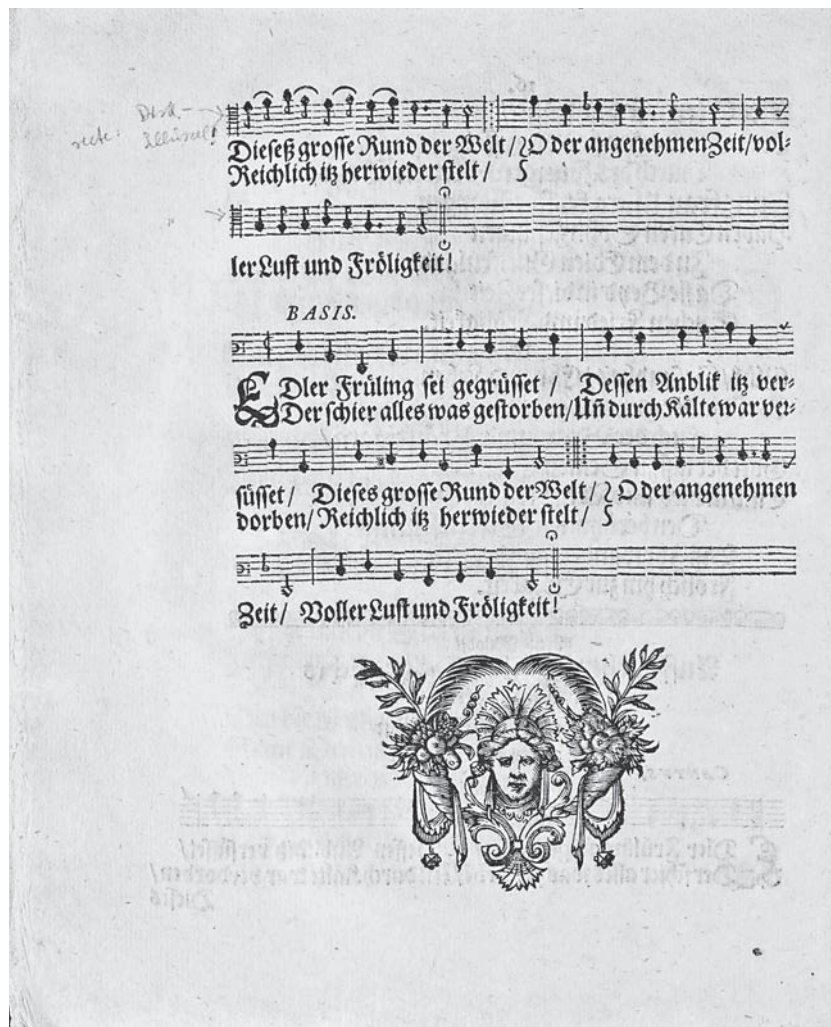 Dieseß grosse Rund der Welt / O der angenehmen Zeit/vol⸗
Reichlich itz herwieder stelt /
ler Lust und Fröligkeit!
BASIS.
EDler Früling sei gegrüsset / Dessen Anblik itz ver⸗
Der schier alles was gestorben/Uñ durch Kälte war ver⸗
süsset / Dieses grosse Rund der Welt / O der angenehmen
dorben/ Reichlich itz herwieder stelt /
Zeit / Voller Lust und Fröligkeit!